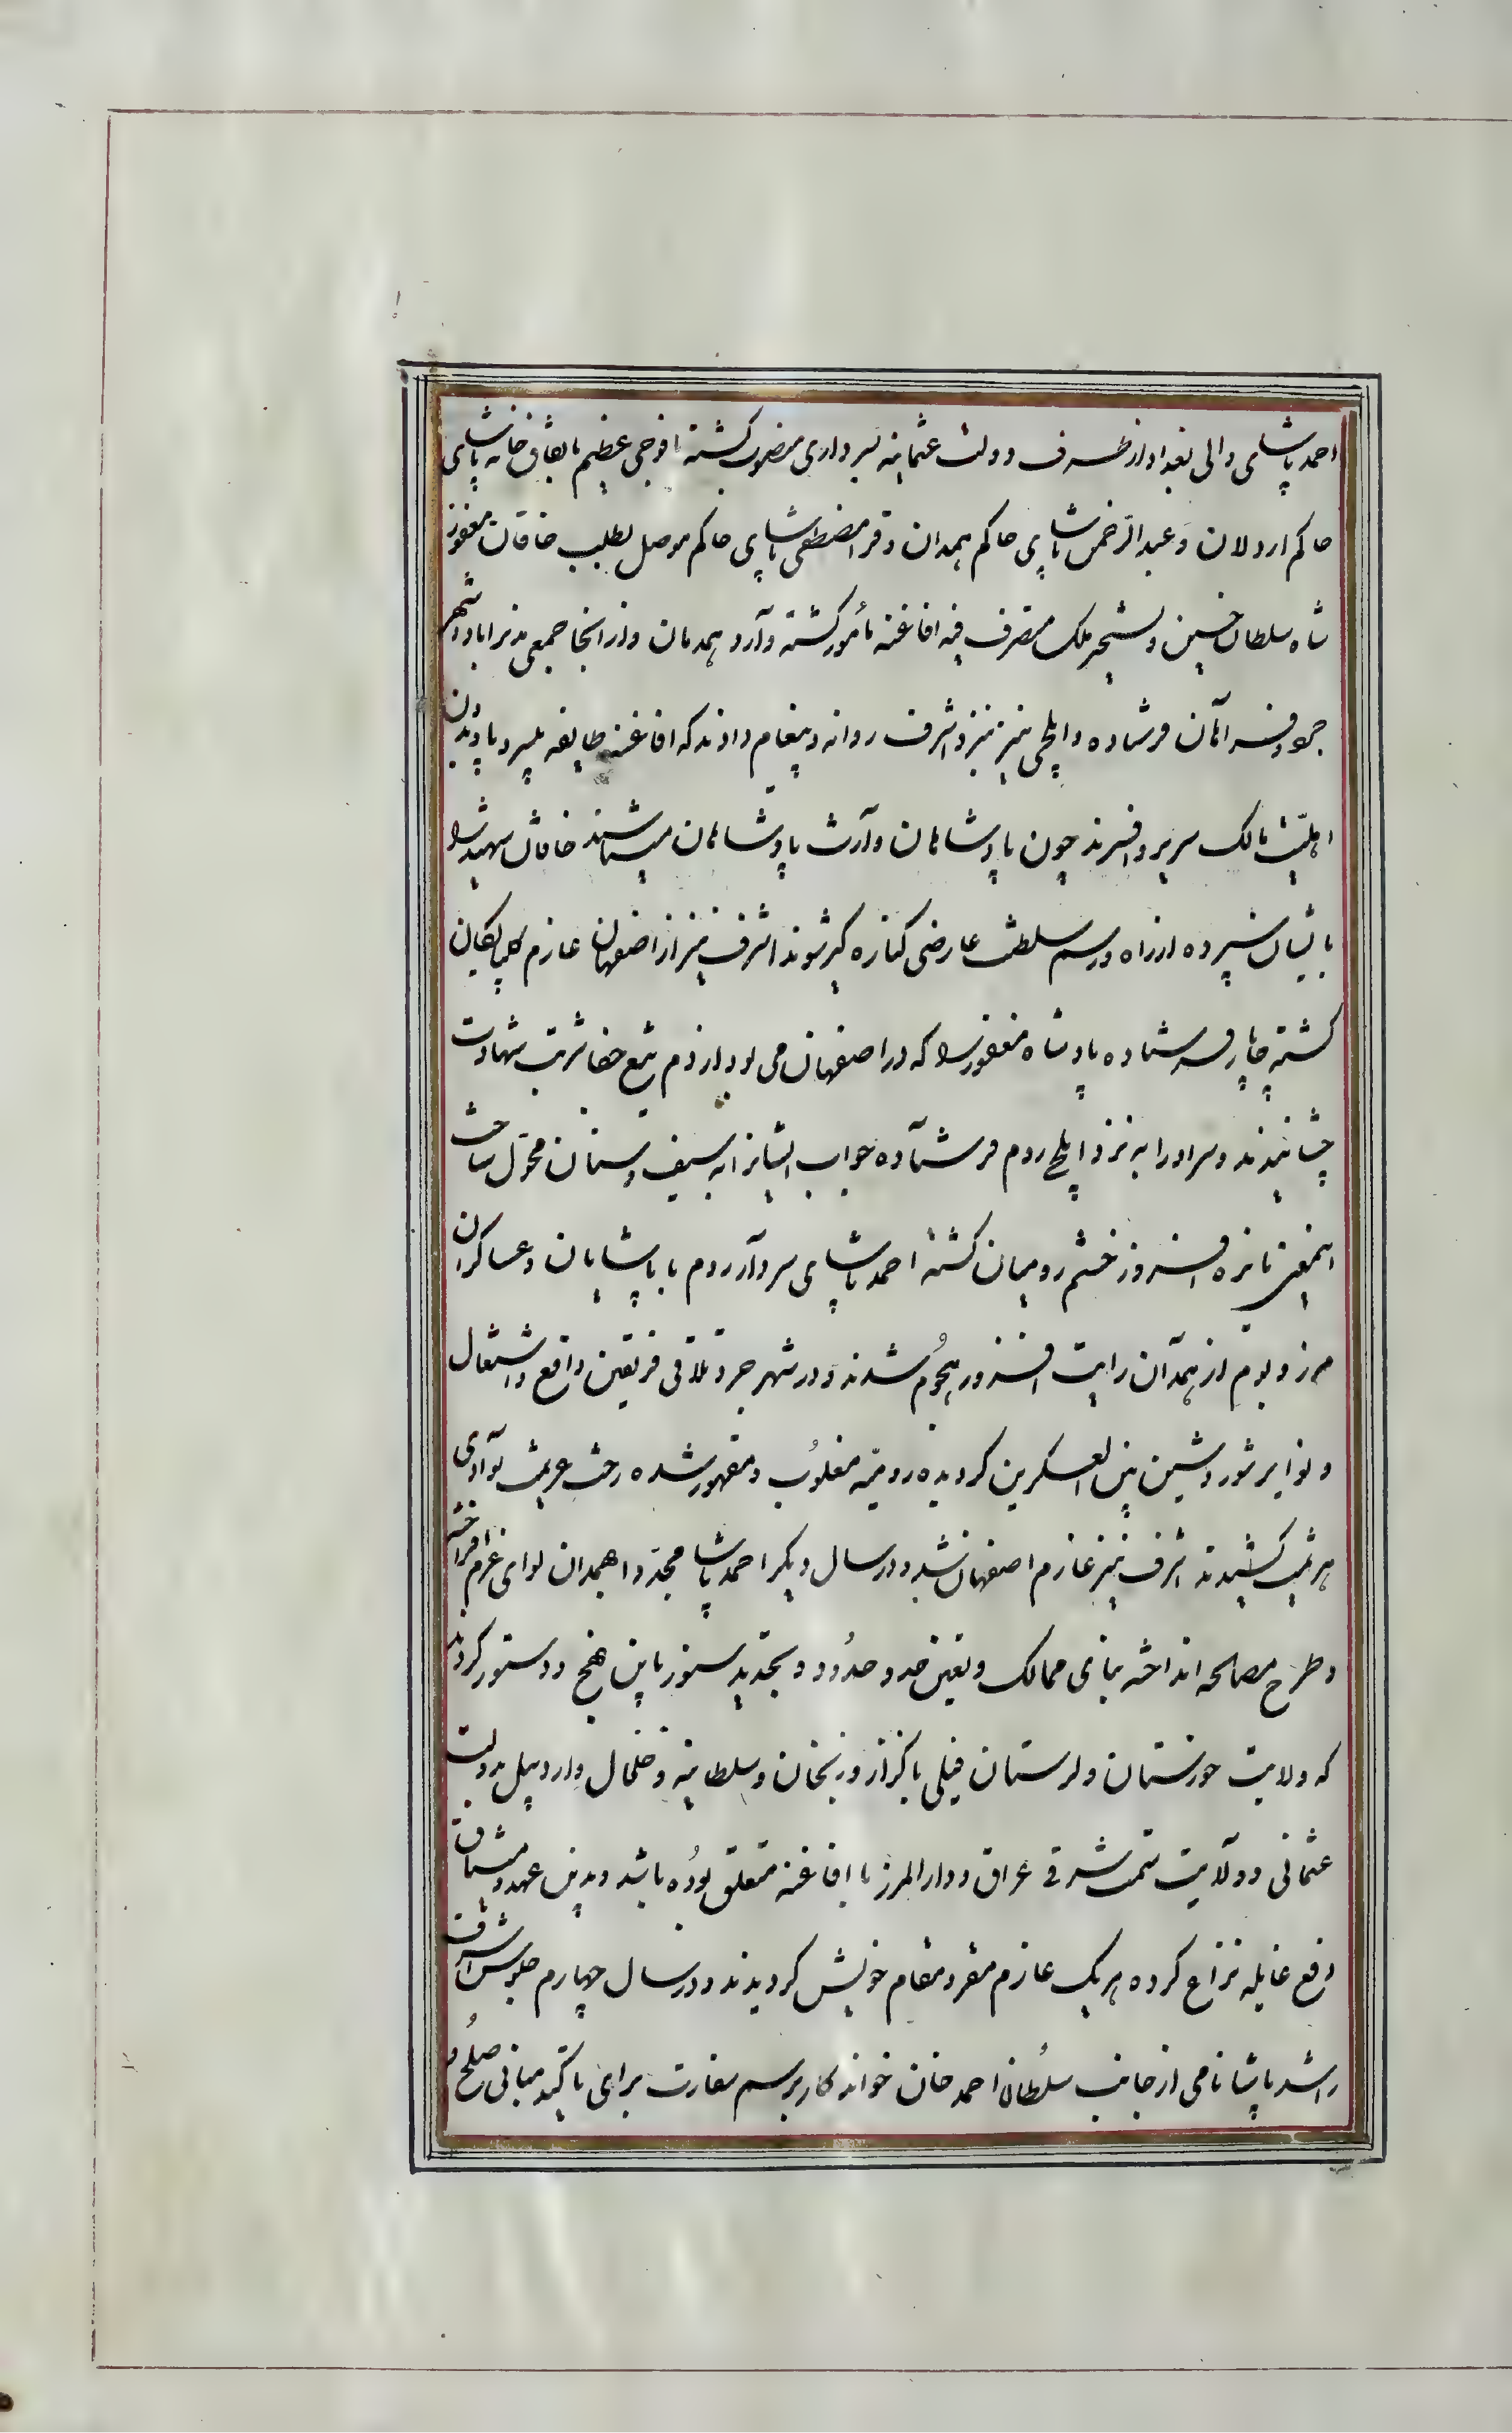 احمد پاشای والی بغداد از طرف دولت عثمانیه بسرداری منصوب کشته با فوجی عظیم باتفاق خانه پاشای
حاکم اردلان و عبدالرحمن پاشای حاکم همدان و قرا مصطفی پاشای حاکم موصل بطلب خاقان مغفور
شاه سلطان حسین و تسخیر ملک متصرف فیه افاغنه مأمور کشته وارد همدان و از انجا جمعی بر سر اباد و شهر
جرد و فراهان فرستاده و ایلچی نیز بنزد اشرف روانه و پیغام دادند که افاغنه طایفه بیسر و پا و بدون
اهلیت مالک سریر و افسرند چون پادشاهان وارث پادشاهان میباشند خاقان شهید را
بایشان سپرده از راه و رسم سلطنت عارضی کناره کیر شوند اشرف نیز از اصفهان عازم کلپایکان
کشته چاپار فرستاده پادشاه مغفور را که در اصفهان می بود از دم تیغ جفا شربت شهادت
چشانیدند و سر او را به نزد ایلچی روم فرستاده جواب ایشانرا به سیف و سنان محول ساخت
اینمعنی نایره افروز خشم رومیان کشته احمد پاشای سردار روم با پاشایان و عساکر ان
مرز و بوم از همدان رایت افروز هجوم شدند و در شهر جرد تلاقی فریقین واقع و اشتعال
نوایر شور و شین بین العسکرین کردیده رومیه مغلوب و مقهور شده رخت عزیمت بوادی
هزیمت کشیدند اشرف نیز عازم اصفهان شد و در سال دیکر احمد پاشا مجددا همدان لوای عزم افراخته
و طرح مصالحه انداخته بنای ممالک و تعیین حد و حدود و تجدید سنور باین نهج و دستور کردند
که ولایت خوزستان و لرستان فیلی با کزاز و زنجان و سلطانیه و خلخال و اردبیل بدولت
عثمانی و ولایت سمت شرقی عراق و دارالمرز با افاغنه متعلق بوده باشد و بدین عهد و میثاق
دفع غایله نزاع کرده هریک عازم مقر و مقام خویش کردیدند و در سال چهارم جلوس اشرف
راشد پاشا نامی از جانب سلطان احمد خان خواندکار برسم سفارت برای تاکید مبانی صلح و